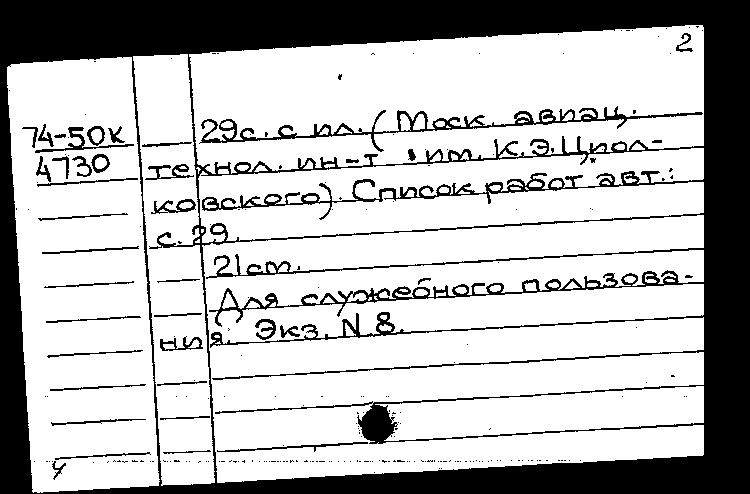 2
74-50к 29с. с ил. (Моск. авиац.
4730 технол. ин-т им. К.Э.Циол-
ковского). Список работ авт.:
с. 29.
21см.
Для служебного пользова-
ния. Экз. N 8.